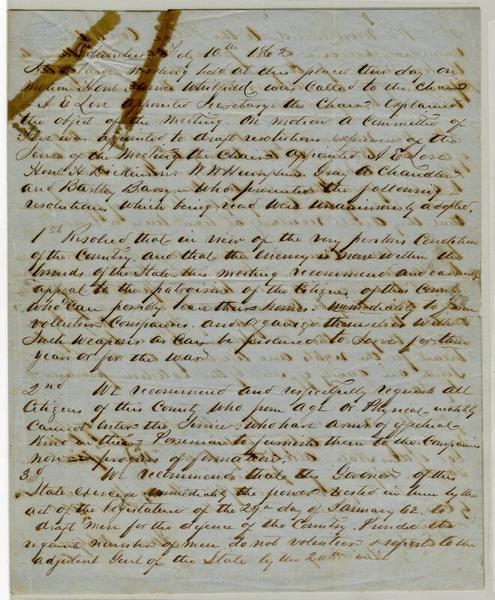 Columbus Feby 10th 1862
At a large meeting held at this place this day on
motion Hon James Whitfield was called to the Chair
A E Love appointed Secretary the Chair Explained
the object of the Meeting. On motion a Committee of
Five was appointed to draft resolutions expressive of the
Sense of the Meeting the Chair appointed A E Love
Hon W W Humphries Chandler
and Bartley who presented the following
resolutions which being read were unanimously adopted.
1st Resolved that in view of the very perilous Condition
of the Country, and that the Enemy is now within the
bounds of the State this meeting recommend and earnestly
appeal to the patriotism of the Citizens of this County
who can possibly leave their homes immediately to form
volunteer Companies and organize themselves with
Such weapons as can be produced to Serve for three
years or for the war
2nd We recommend and respectfully request all
Citizens of this County who from age or Physical inability
Cannot Enter the Service who have arms of effectual
Kind in their Possession to furnish them to the Companies
now in progress of formation.
3d We recommend that the Govenor of this
State Exercise immediately the power vested in him by the
act of the Legislature of the 29th day of January 62. to
draft men for the defence of the Country Provided the
requisite number of men do not volunteer & report to the
adjutent Genl of the State by the 20th